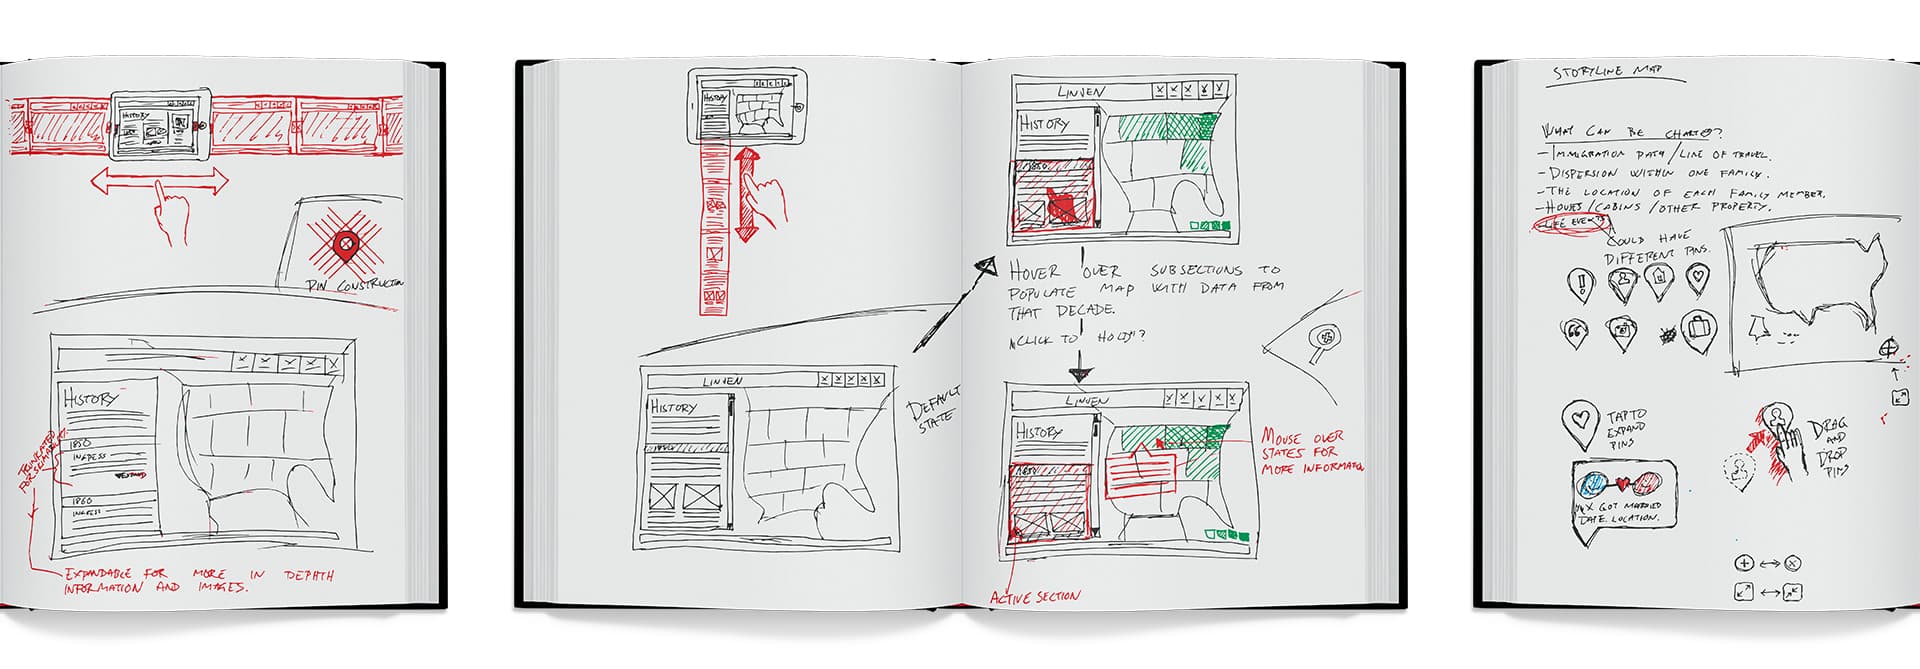 HISTORY
PIN CONSTRUCTION
HISTORY
1850
EXPAND
1860
TRUNCATED
EXPANDABLE FOR MORE IN DEPHTH
INFORMATION AND IMAGES.
HISTORY
LINVEN
HISTORY
DEFAULT
STATE
LINVEN
HISTORY
1850
HOVER OVER SUBSECTIONS TO
POPULATE MAP WITH DATA FROM
THAT DECADE.
"CLICK TO HOLD"?
LINVEN
HISTORY
1850
MOUSE OVER
STATES FOR
MORE INFORMATION
ACTIVE SECTION
STORYLINE MAP
WHAT CAN BE CHARTED?
- IMMIGRATION PATH / LINE OF TRAVEL.
- DISPERSION WITHIN ONE FAMILY.
- THE LOCATION OF EACH FAMILY MEMBER.
- HOUSES / CABINS / OTHER PROPERTY.
- LIFE EVENTS
COULD HAVE
DIFFERENT PINS.
TAP TO
EXPAND
PINS
DRAG
AND
DROP
PINS
X GOT MARRIED
DATE. LOCATION.